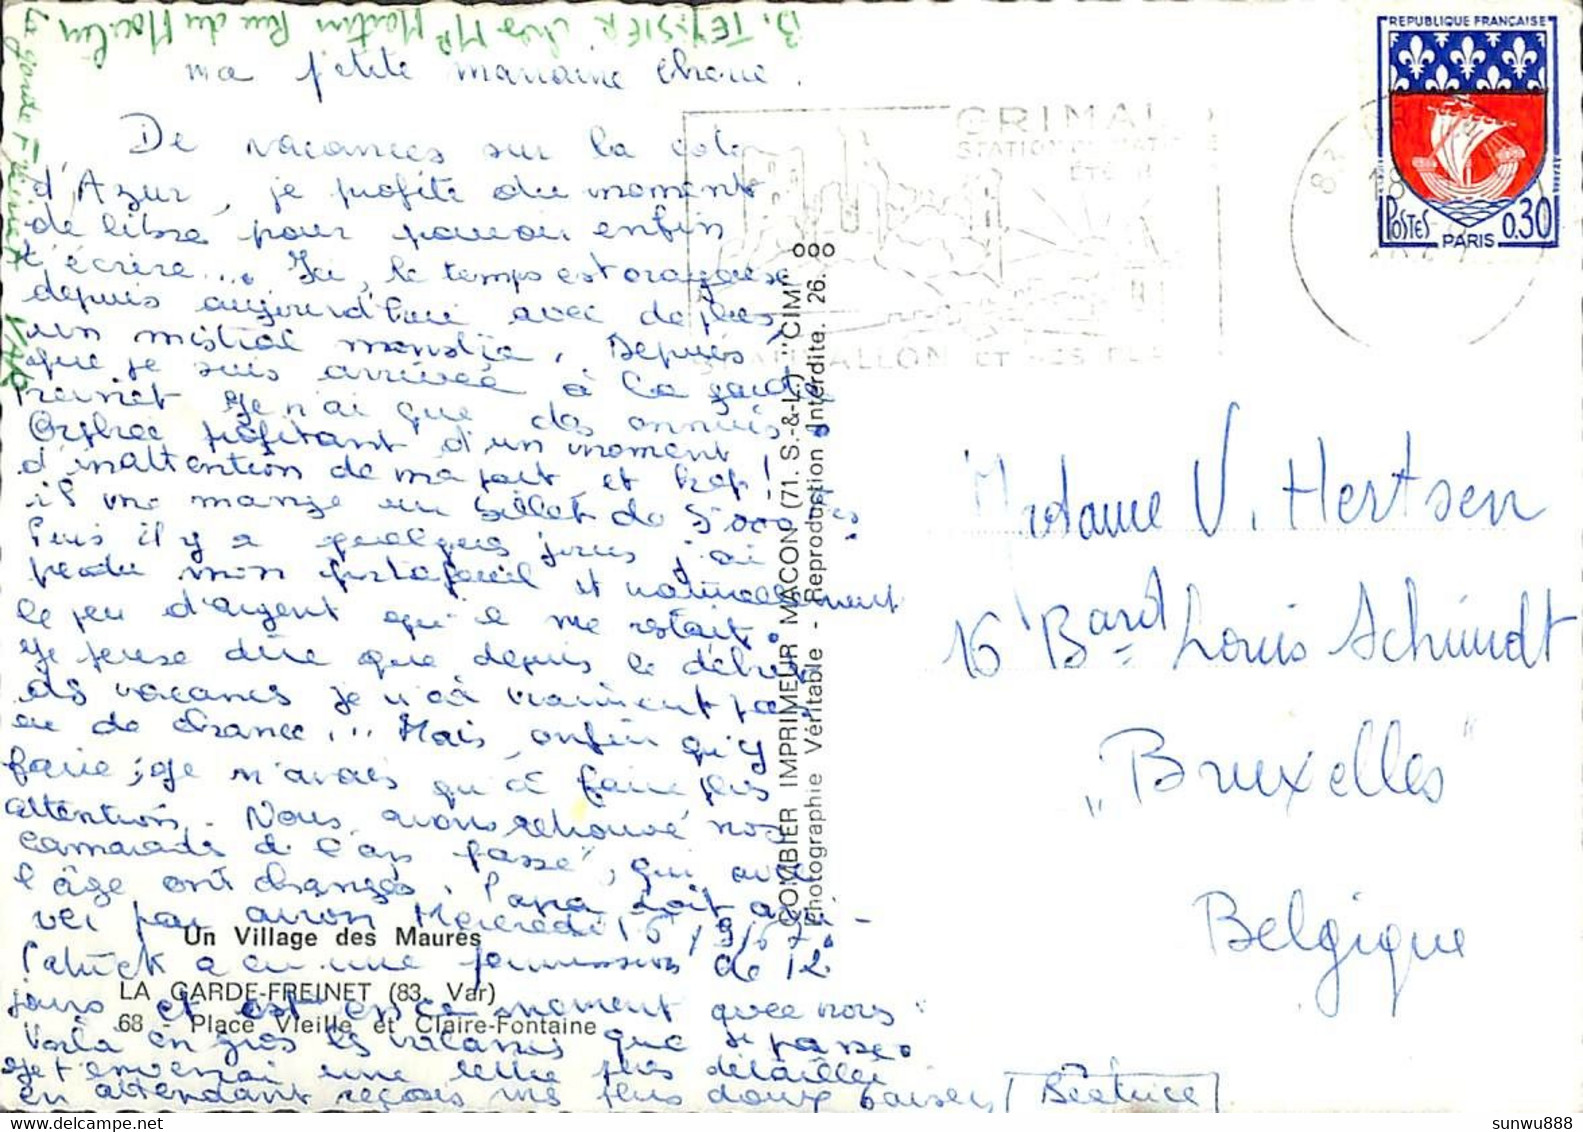 B. TEYSSIER chez Mr Martin Rue du Moulin
La garde Freinet VAR
ma petite marraine cherie.
De vacances sur la cote
d'Azur, je profite du moment
de libre pour pouvoir enfin
t'écrire... Ici, le temps est orageuse
depuis aujourd'hui avec de plus
un mistral . Depuis
que je suis arrivée à la garde
Freinet je n'ai que des ennuis.
Orphée profitant d'un moment
d'inattention de ma part et hop!
il me mange un billet de 5000
Puis il y a quelques jours j'ai
perdu mon portefeuil et naturellement
le peu d'argent qu'il me restait.
Je peuse dire que depuis le début
des vacances je n'ai vraiment pas
eu de chance... Mais enfin qu'y
faire; je n'avais qu'à faire plus
attention. Nous avons retrouvé nos
camarade de l'an passé, qui avec
l'âge ont changés. Papa doit arri-
ver par avion Mercredi
Patrick a eu une permission de 12
jours et est en ce moment avec nous.
Voilà en gros les vacances que je passe.
Je t'enverrai une lettre plus détaillée
en attendant reçois mes plus doux baisers Béatrice
Un Village des Maures
LA GARDE-FREINET (83. Var)
68 - Place Vieille et Claire-Fontaine
COMBIER IMPRIMEUR MACON (71. S.-&-L.) "CIM"
Photographie Véritable - Reproduction Interdite. 26. ooo
GRIMAUD
ÉTÉ
REPUBLIQUE FRANÇAISE
POSTES PARIS 0,30
83
18
Madame V. Hertsen
16 Bard Louis Schmidt
"Bruxelles"
Belgique
www.delcampe.net
sunwu888